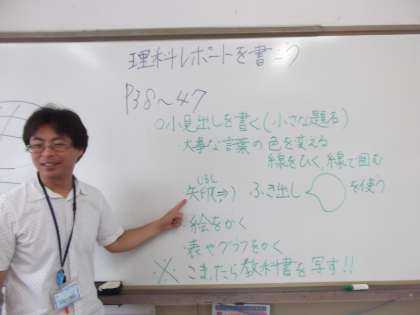 理科レポートを書こう
P38〜47
○小見出しを書く(小さな題名)
大事な言葉の色を変える
線をひく、線で囲む
しるし
矢印(⇒) ふき出し を使う
・絵をかく
・表やグラフをかく
※ こまったら教科書を写す!!